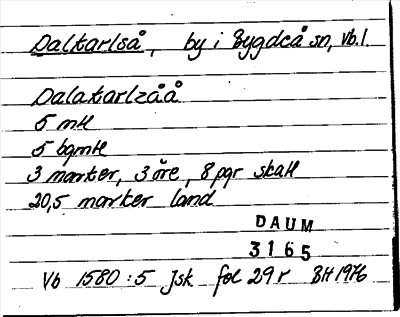 Dalkarlså, by i Bygdeå sn, Vb. l.
Dalakarlzåå
5 mtl
5 bgmtl
3 marker, 3 öre, 8 pgr skatt
20,5 marker land
DAUM
3165
Vb 1580:5 Jsk fol 29 r BH 1976